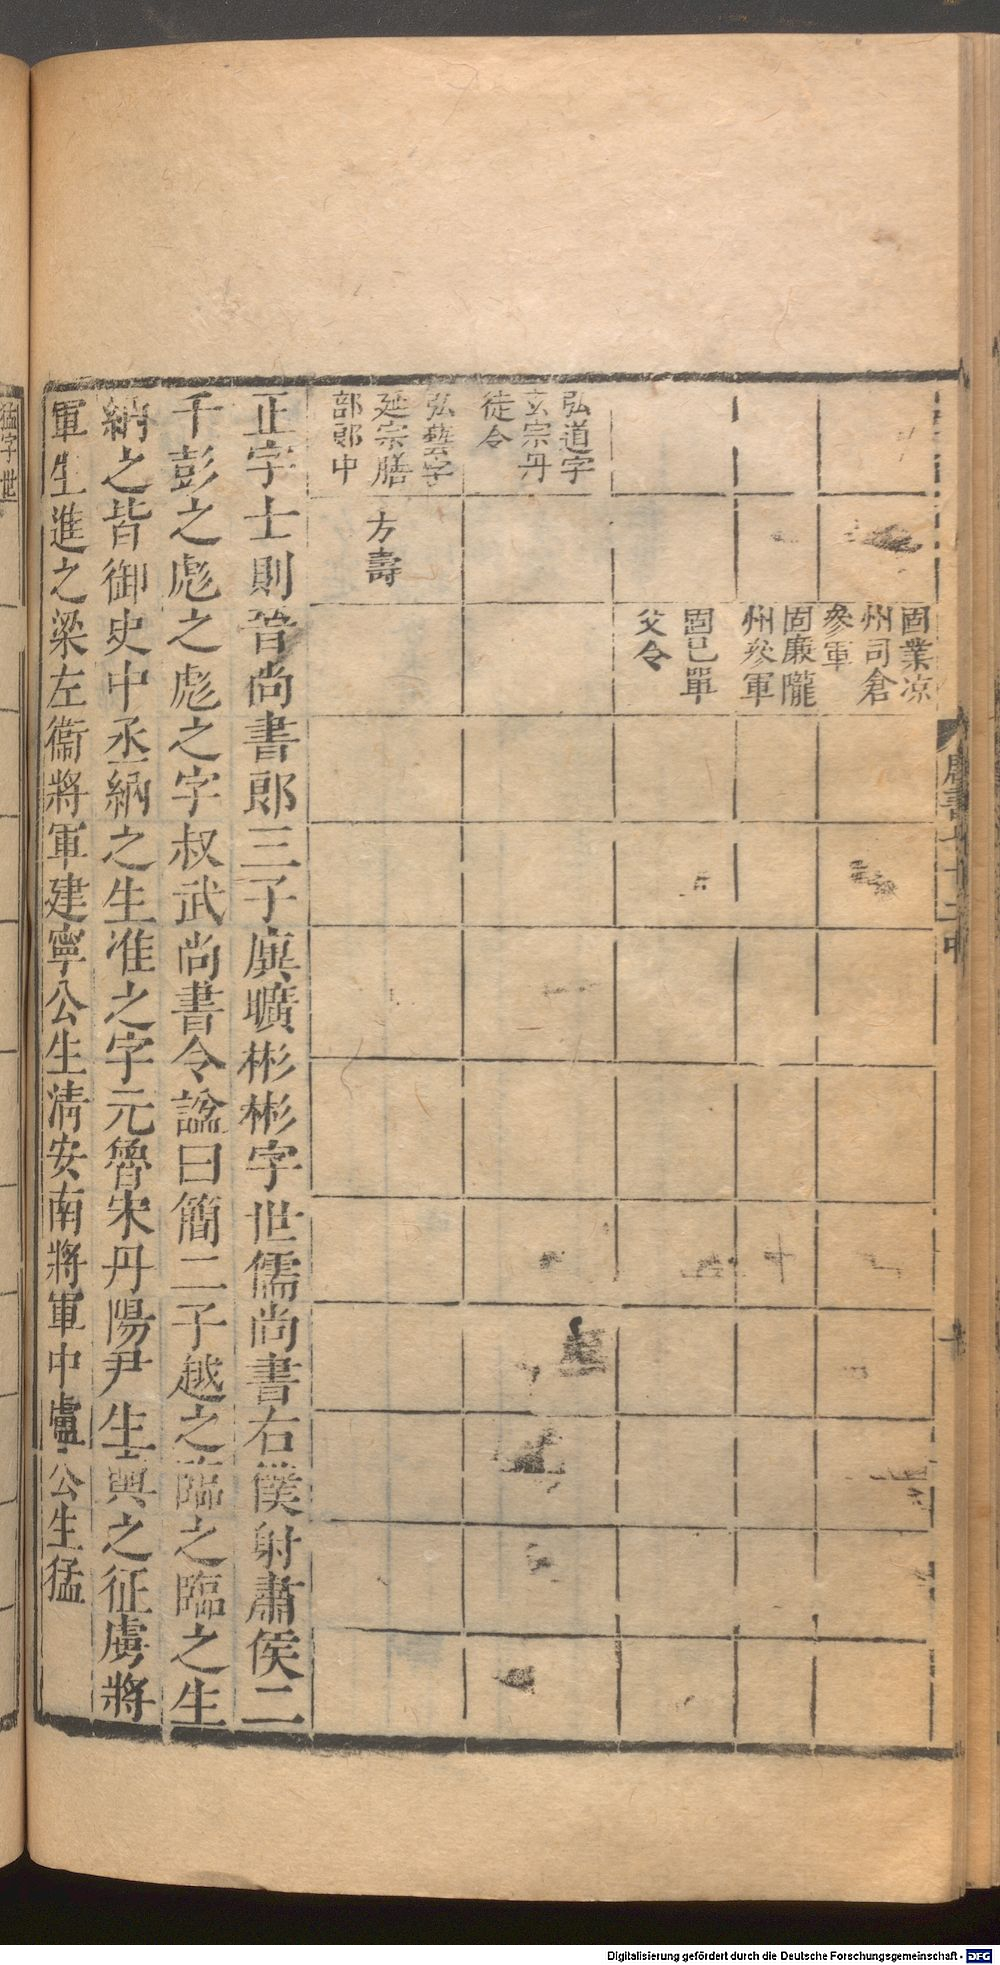 固業凉
州司倉
參軍
固廉隴
州參軍
固已單
父令
弘道字
玄宗丹
徒令
弘藝字
延宗膳
部郎中
方壽
正字士則晉尚書郎三子庾曠彬彬字世儒尚書右僕射肅侯二
千彭之彪之彪之字叔武尚書令諡曰簡二子越之臨之臨之生
納之皆御史中丞納之生准之字元魯宋丹陽尹生輿之征虜將
軍生進之梁左衞將軍建寧公生清安南將軍中盧公生猛
猛字世
Digitalisierung gefördert durch die Deutsche Forschungsgemeinschaft - DFG